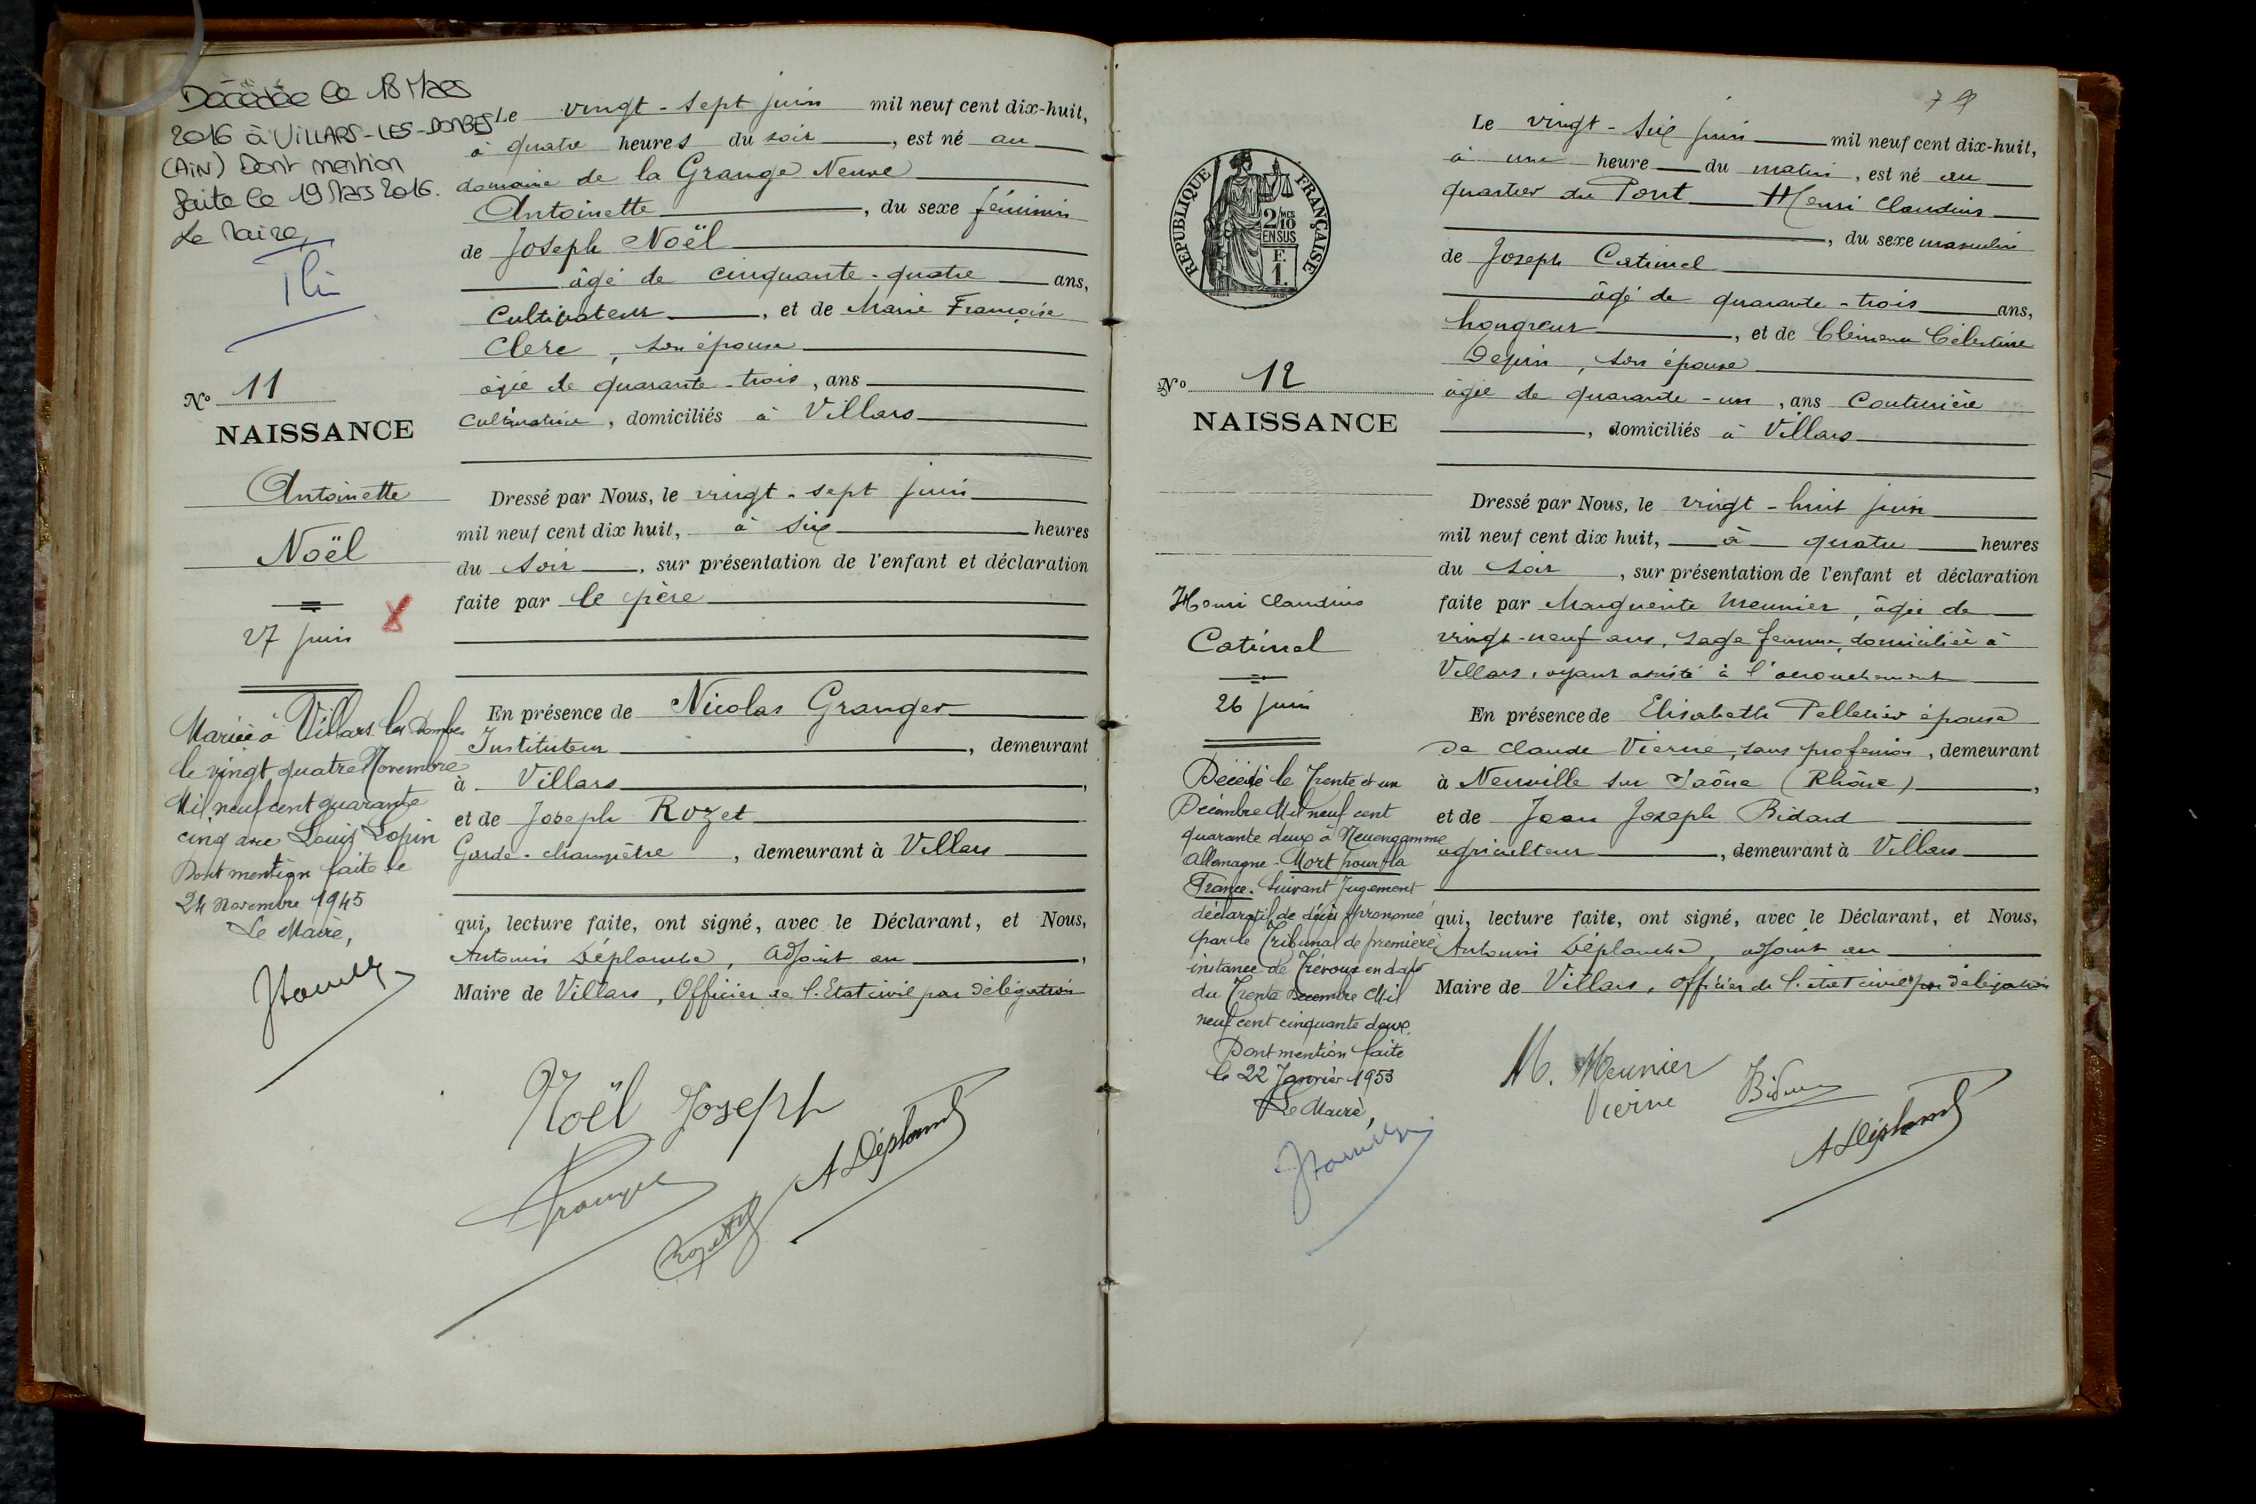 Décédée le 18 Mars
2016 à VILLARS-LES-DOMBES
(AIN) Dont mention
faite le 19 Mars 2016.
Le Maire,
N° 11
NAISSANCE
Antoinette
Noël
27 juin
Mariée à Villars les Dombes
le vingt quatre Novembre
Mil neuf cent quarante
cinq avec Louis Lopin
Dont mention faite le
24 Novembre 1945
Le Maire,
Le vingt-sept juin mil neuf cent dix-huit,
à quatre heures du soir, est né au
domaine de la Grange Neuve
Antoinette, du sexe féminin
de Joseph Noël
âgé de cinquante-quatre ans,
Cultivateur, et de Marie Françoise
Clerc, son épouse
âgée de quarante-trois, ans
Cultivatrice, domiciliés à Villars
Dressé par Nous, le vingt-sept juin
mil neuf cent dix huit, à six heures
du soir, sur présentation de l'enfant et déclaration
faite par le père
En présence de Nicolas Granger
Instituteur, demeurant
à Villars,
et de Joseph Rozet
Garde-champêtre, demeurant à Villars
qui, lecture faite, ont signé, avec le Déclarant, et Nous,
Antonin Déplanche, adjoint au,
Maire de Villars, Officier de l'Etat civil par délégation
Noël Joseph
Granger
Rozet
A Déplanche
79
RÉPUBLIQUE FRANÇAISE
2/10 MES
EN SUS
F.
1.
N° 12
NAISSANCE
Henri Claudius
Catimel
26 juin
Décédé le trente et un
Décembre Mil neuf cent
quarante deux à Neuengamme
Allemagne - Mort pour la
France. Suivant Jugement
déclaratif de décès prononcé
par le Tribunal de première
instance de Trévoux en date
du trente Décembre Mil
neuf cent cinquante deux.
Dont mention faite
le 22 Janvier 1953
Le Maire,
Le vingt-six juin mil neuf cent dix-huit,
à une heure du matin, est né au
quartier du Pont Henri Claudius
, du sexe masculin
de Joseph Catimel
âgé de quarante-trois ans,
hongreur, et de Clémence Célestine
Depin, son épouse
âgée de quarante-un, ans Couturière
, domiciliés à Villars
Dressé par Nous, le vingt-huit juin
mil neuf cent dix huit, à quatre heures
du soir, sur présentation de l'enfant et déclaration
faite par Marguerite Meunier, âgée de
vingt-neuf ans, sage femme, domiciliée à
Villars, ayant assisté à l'accouchement
En présence de Elisabeth Pelletier épouse
de Claude Vierne, sans profession, demeurant
à Neuville sur Saône (Rhône),
et de Jean Joseph Bidard
agriculteur, demeurant à Villars
qui, lecture faite, ont signé, avec le Déclarant, et Nous,
Antonin Déplanche, adjoint au
Maire de Villars, officier de l'état civil par délégation
M. Meunier
Vierne
Bidard
A Déplanche